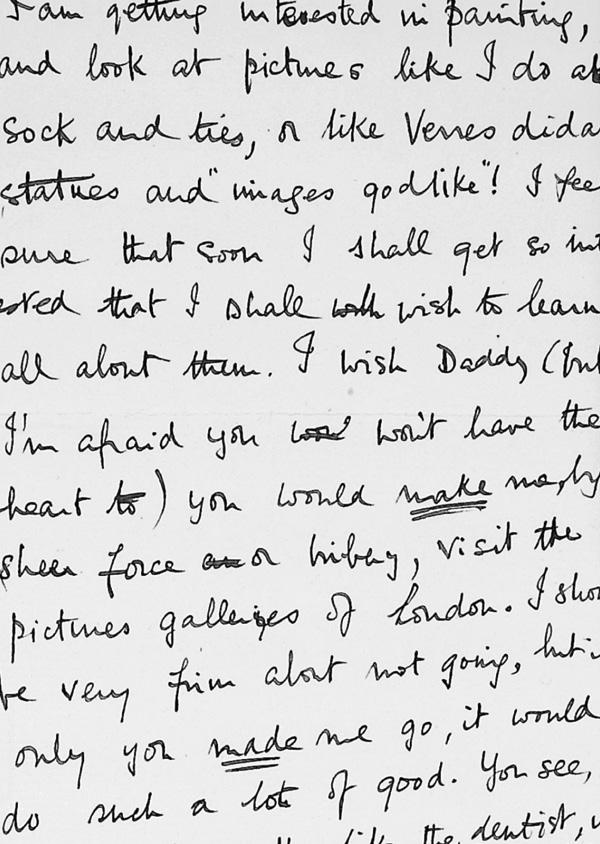 I am getting interested in painting,
and look at pictures like I do at
sock and ties, or like Verres did a
statues and "images godlike"! I fee
sure that soon I shall get so int
ested that I shall wish to learn
all about them. I wish Daddy (but
I'm afraid you won't have the
heart to) you would make me, by
sheer force or bribery, visit the
pictures galleries of London. I sho
be very firm about not going, but i
only you made me go, it would
do such a lot of good. You see,
like the dentist,